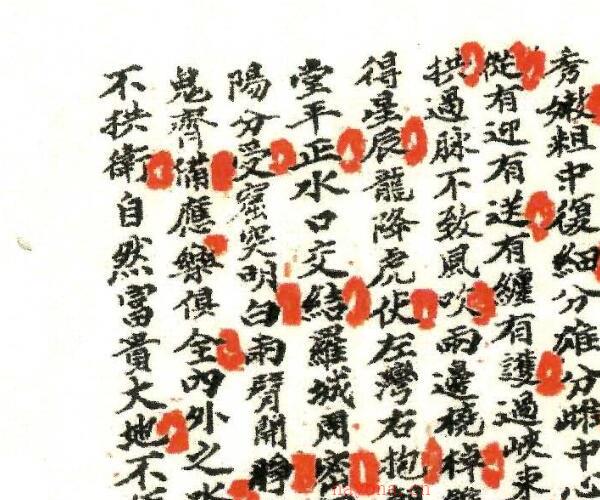 秀嫩粗中復細分雄分雌中
從有迎有送有纏有護過峽東
拱過脉不致風吹兩邊橈棹
得星辰龍降虎伏左灣右抱
堂平正水口交結羅城周密
陽分受窟突明白兩臂開
鬼齊備應樂俱全四外之水
不拱衛自然富貴大地不